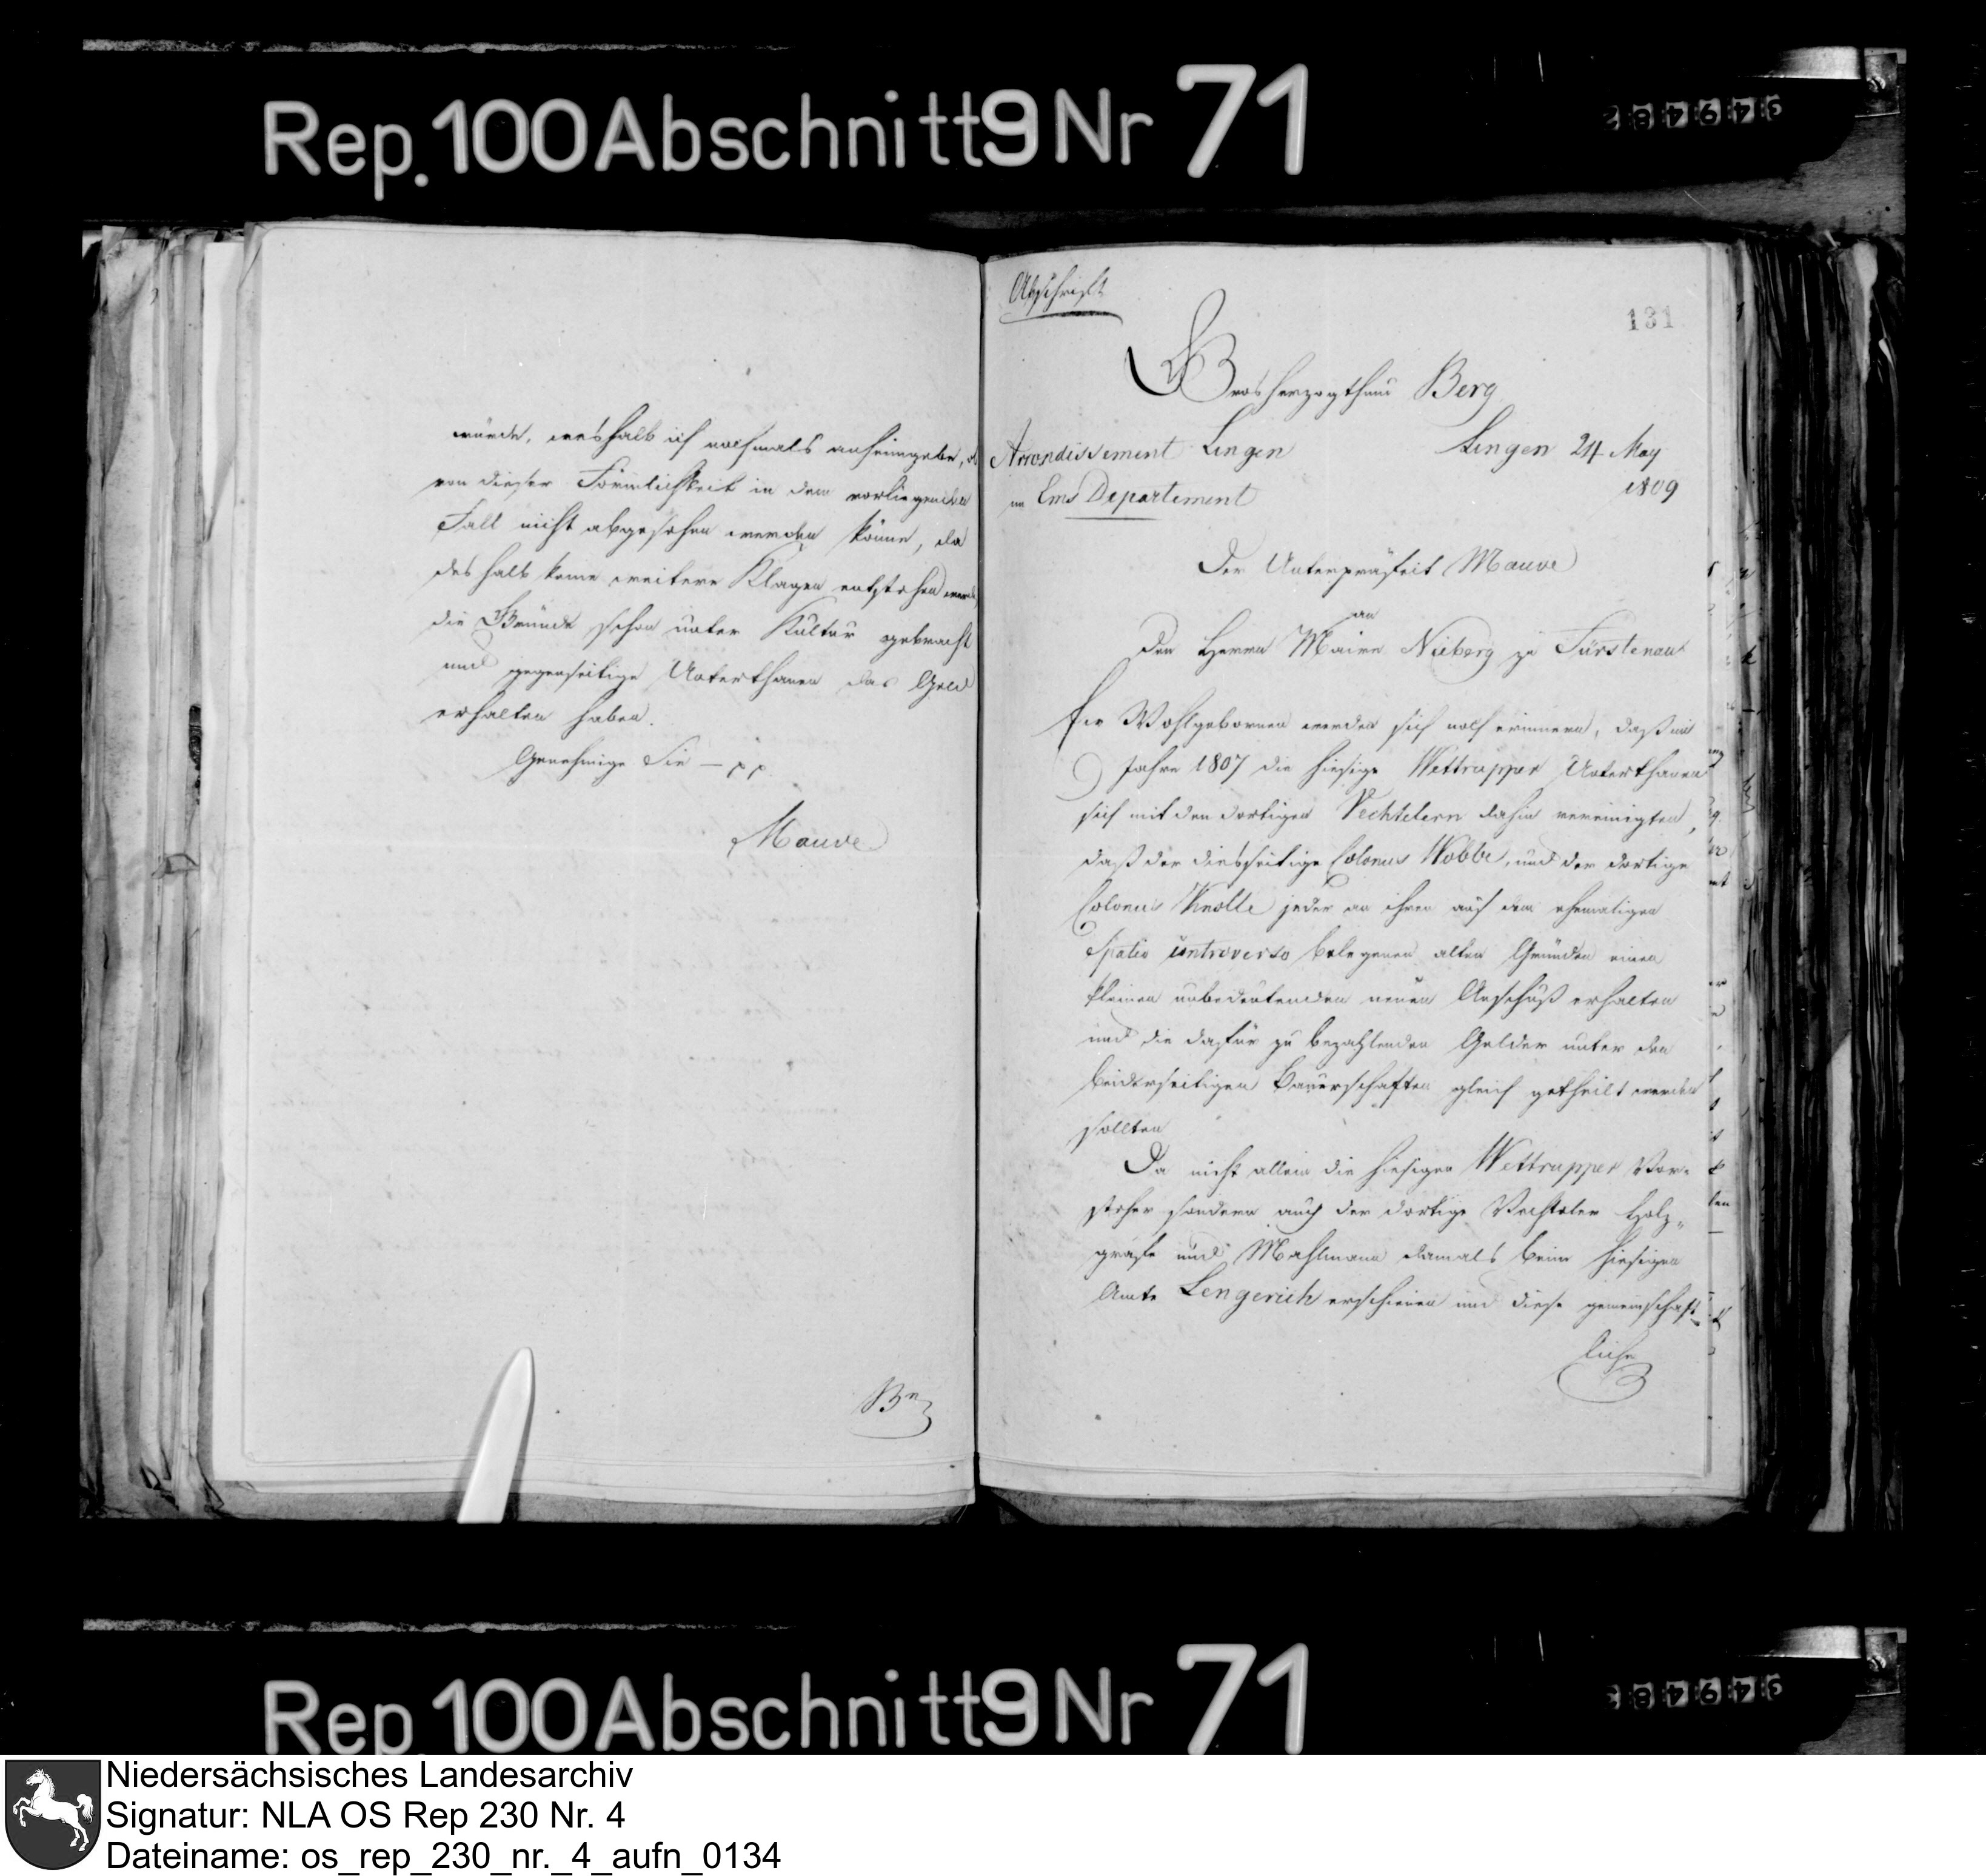 Rep. 100 Abschnitt 9 Nr 71
würde, weshalb ich nochmals anheimgebe, ob
von dieser Förmlichkeit in dem vorliegenden
Fall nicht abgesehen werden könne, da
deshalb keine weitere Klagen entstehen werden,
die Gründe schon unter Kultur gebracht
und gegenseitige Unterthanen das Geld
erhalten haben.
Genehmige Sie — pp
Mauve
Abschrift
131
Grosherzogthum Berg
Arrondissement Lingen
Lingen 24 May
im Ems Departement
1809
Der Unterpräfect Mauve
an
Den Herrn Maire Nieberg zu Fürstenau
Ew Wohlgebornen werden sich noch erinnern, daß im
Jahre 1807 die hiesige Wettrupper Unterthanen
sich mit den dortigen Vechtelern dahin vereinigten,
daß der diesseitige Colonus Wobbe, und der dortige
Colonus Knolle jeder an ihren auf dem ehemaligen
Spatio controverso belegenen alten Gründen einen
kleinen unbedeutenden neuen Anschuß erhalten
und die dafür zu bezahlenden Gelder unter den
beiderseitigen Bauerschaften gleich getheilt werden
sollten
Da nicht allein die hiesigen Wettrupper Vor-
steher sondern auch der dortige Vechteler Holz-
grafe und Mahlmann damals beim hiesigen
Amte Lengerich erschienen und diese gemeinschaft-
liche
Rep 100 Abschnitt 9 Nr 71
Niedersächsisches Landesarchiv
Signatur: NLA OS Rep 230 Nr. 4
Dateiname: os_rep_230_nr._4_aufn_0134